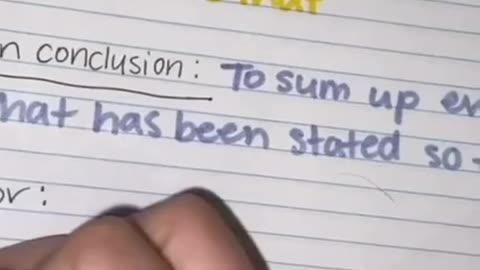 n conclusion: To sum up
hat has been stated so
or: